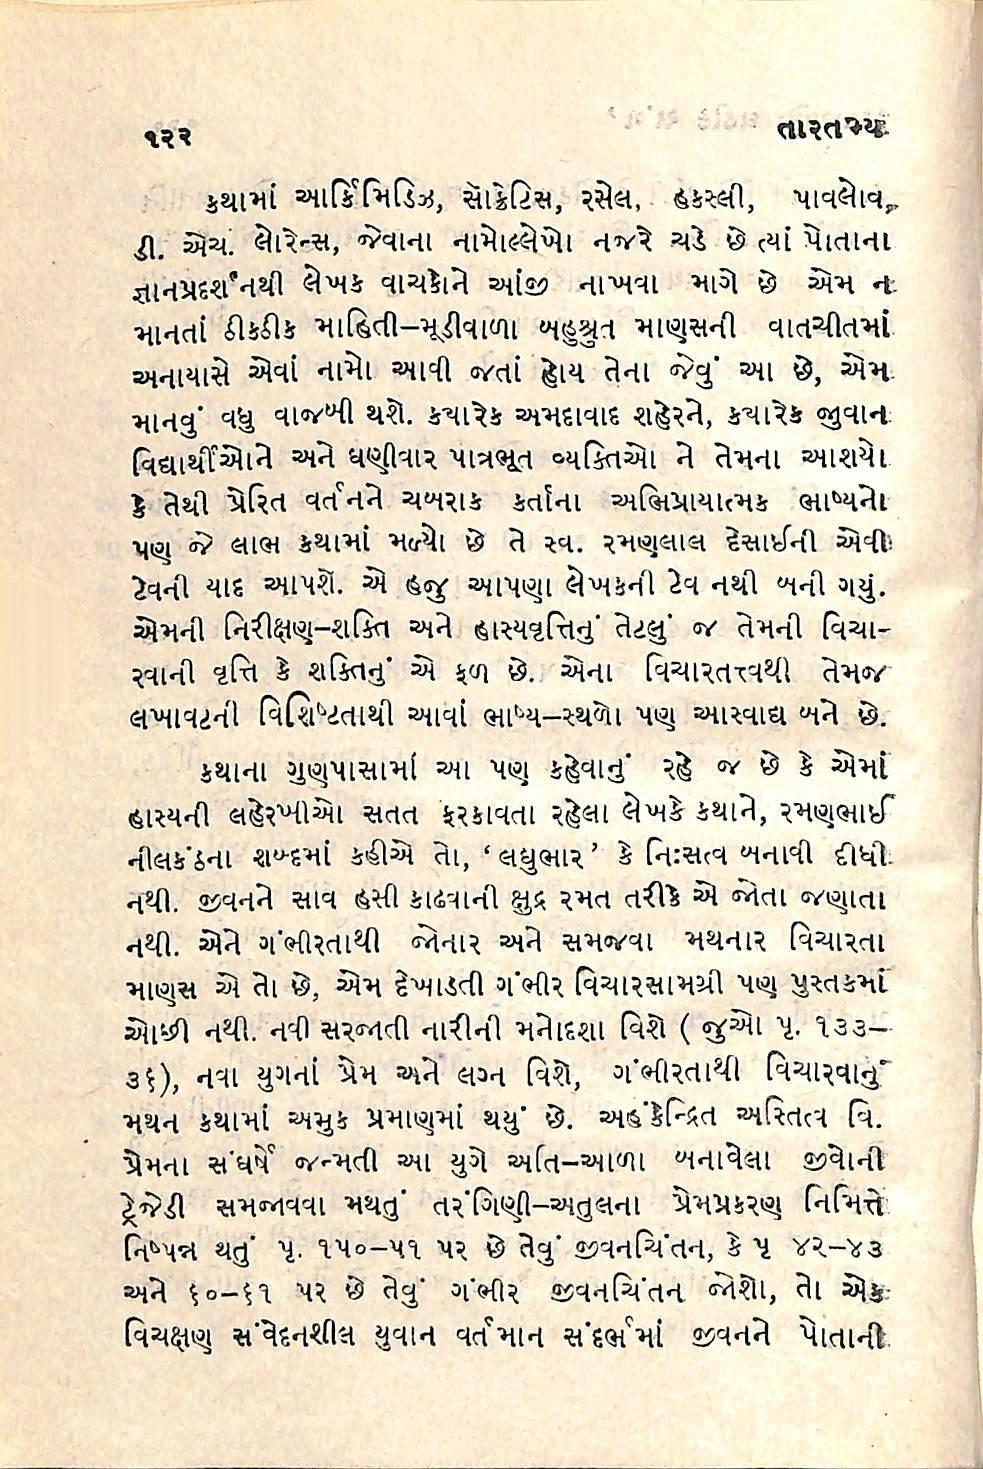 ૧૨૨ તારતમ્ય
કથામાં આર્કિમિડિઝ, સૉક્રેટિસ, રસેલ, હકસ્લી, પાવલોવ,
ડી. એચ. લોરેન્સ, જેવાના નામોલ્લેખો નજરે ચડે છે ત્યાં પોતાના
જ્ઞાનપ્રદર્શનથી લેખક વાચકોને આંજી નાખવા માગે છે એમ ન
માનતાં ઠીકઠીક માહિતી–મૂડીવાળા બહુશ્રુત માણસની વાતચીતમાં
અનાયાસે એવાં નામો આવી જતાં હોય તેના જેવું આ છે, એમ
માનવું વધુ વાજબી થશે. ક્યારેક અમદાવાદ શહેરને, ક્યારેક જુવાન
વિદ્યાર્થીઓને અને ઘણીવાર પાત્રભૂત વ્યક્તિઓ ને તેમના આશયો
કે તેથી પ્રેરિત વર્તનને ચબરાક કર્તાના અભિપ્રાયાત્મક ભાષ્યનો
પણ જે લાભ કથામાં મળ્યો છે તે સ્વ. રમણલાલ દેસાઈની એવી
ટેવની યાદ આપશે. એ હજુ આપણા લેખકની ટેવ નથી બની ગયું.
એમની નિરીક્ષણ–શક્તિ અને હાસ્યવૃત્તિનું તેટલું જ તેમની વિચા-
રવાની વૃત્તિ કે શક્તિનું એ ફળ છે. એના વિચારતત્ત્વથી તેમજ
લખાવટની વિશિષ્ટતાથી આવાં ભાષ્ય–સ્થળો પણ આસ્વાદ્ય બને છે.
કથાના ગુણપાસામાં આ પણ કહેવાનું રહે જ છે કે એમાં
હાસ્યની લહેરખીઓ સતત ફરકાવતા રહેલા લેખકે કથાને, રમણભાઈ
નીલકંઠના શબ્દમાં કહીએ તો, ‘લઘુભાર’ કે નિઃસત્વ બનાવી દીધી
નથી. જીવનને સાવ હસી કાઢવાની ક્ષુદ્ર રમત તરીકે એ જોતા જણાતા
નથી. એને ગંભીરતાથી જોનાર અને સમજવા મથનાર વિચારતા
માણસ એ તો છે, એમ દેખાડતી ગંભીર વિચારસામગ્રી પણ પુસ્તકમાં
ઓછી નથી. નવી સરજાતી નારીની મનોદશા વિશે ( જુઓ પૃ. ૧૩૩–
૩૬), નવા યુગનાં પ્રેમ અને લગ્ન વિશે, ગંભીરતાથી વિચારવાનું
મથન કથામાં અમુક પ્રમાણમાં થયું છે. અહંકેન્દ્રિત અસ્તિત્વ વિ.
પ્રેમના સંઘર્ષે જન્મતી આ યુગે અતિ–આળા બનાવેલા જીવોની
ટ્રેજેડી સમજાવવા મથતું તરંગિણી–અતુલના પ્રેમપ્રકરણ નિમિત્તે
નિષ્પન્ન થતું પૃ. ૧૫૦–૫૧ પર છે તેવું જીવનચિંતન, કે પૃ ૪૨–૪૩
અને ૬૦–૬૧ પર છે તેવું ગંભીર જીવનચિંતન જોશો, તો એક
વિચક્ષણ સંવેદનશીલ યુવાન વર્તમાન સંદર્ભમાં જીવનને પોતાની